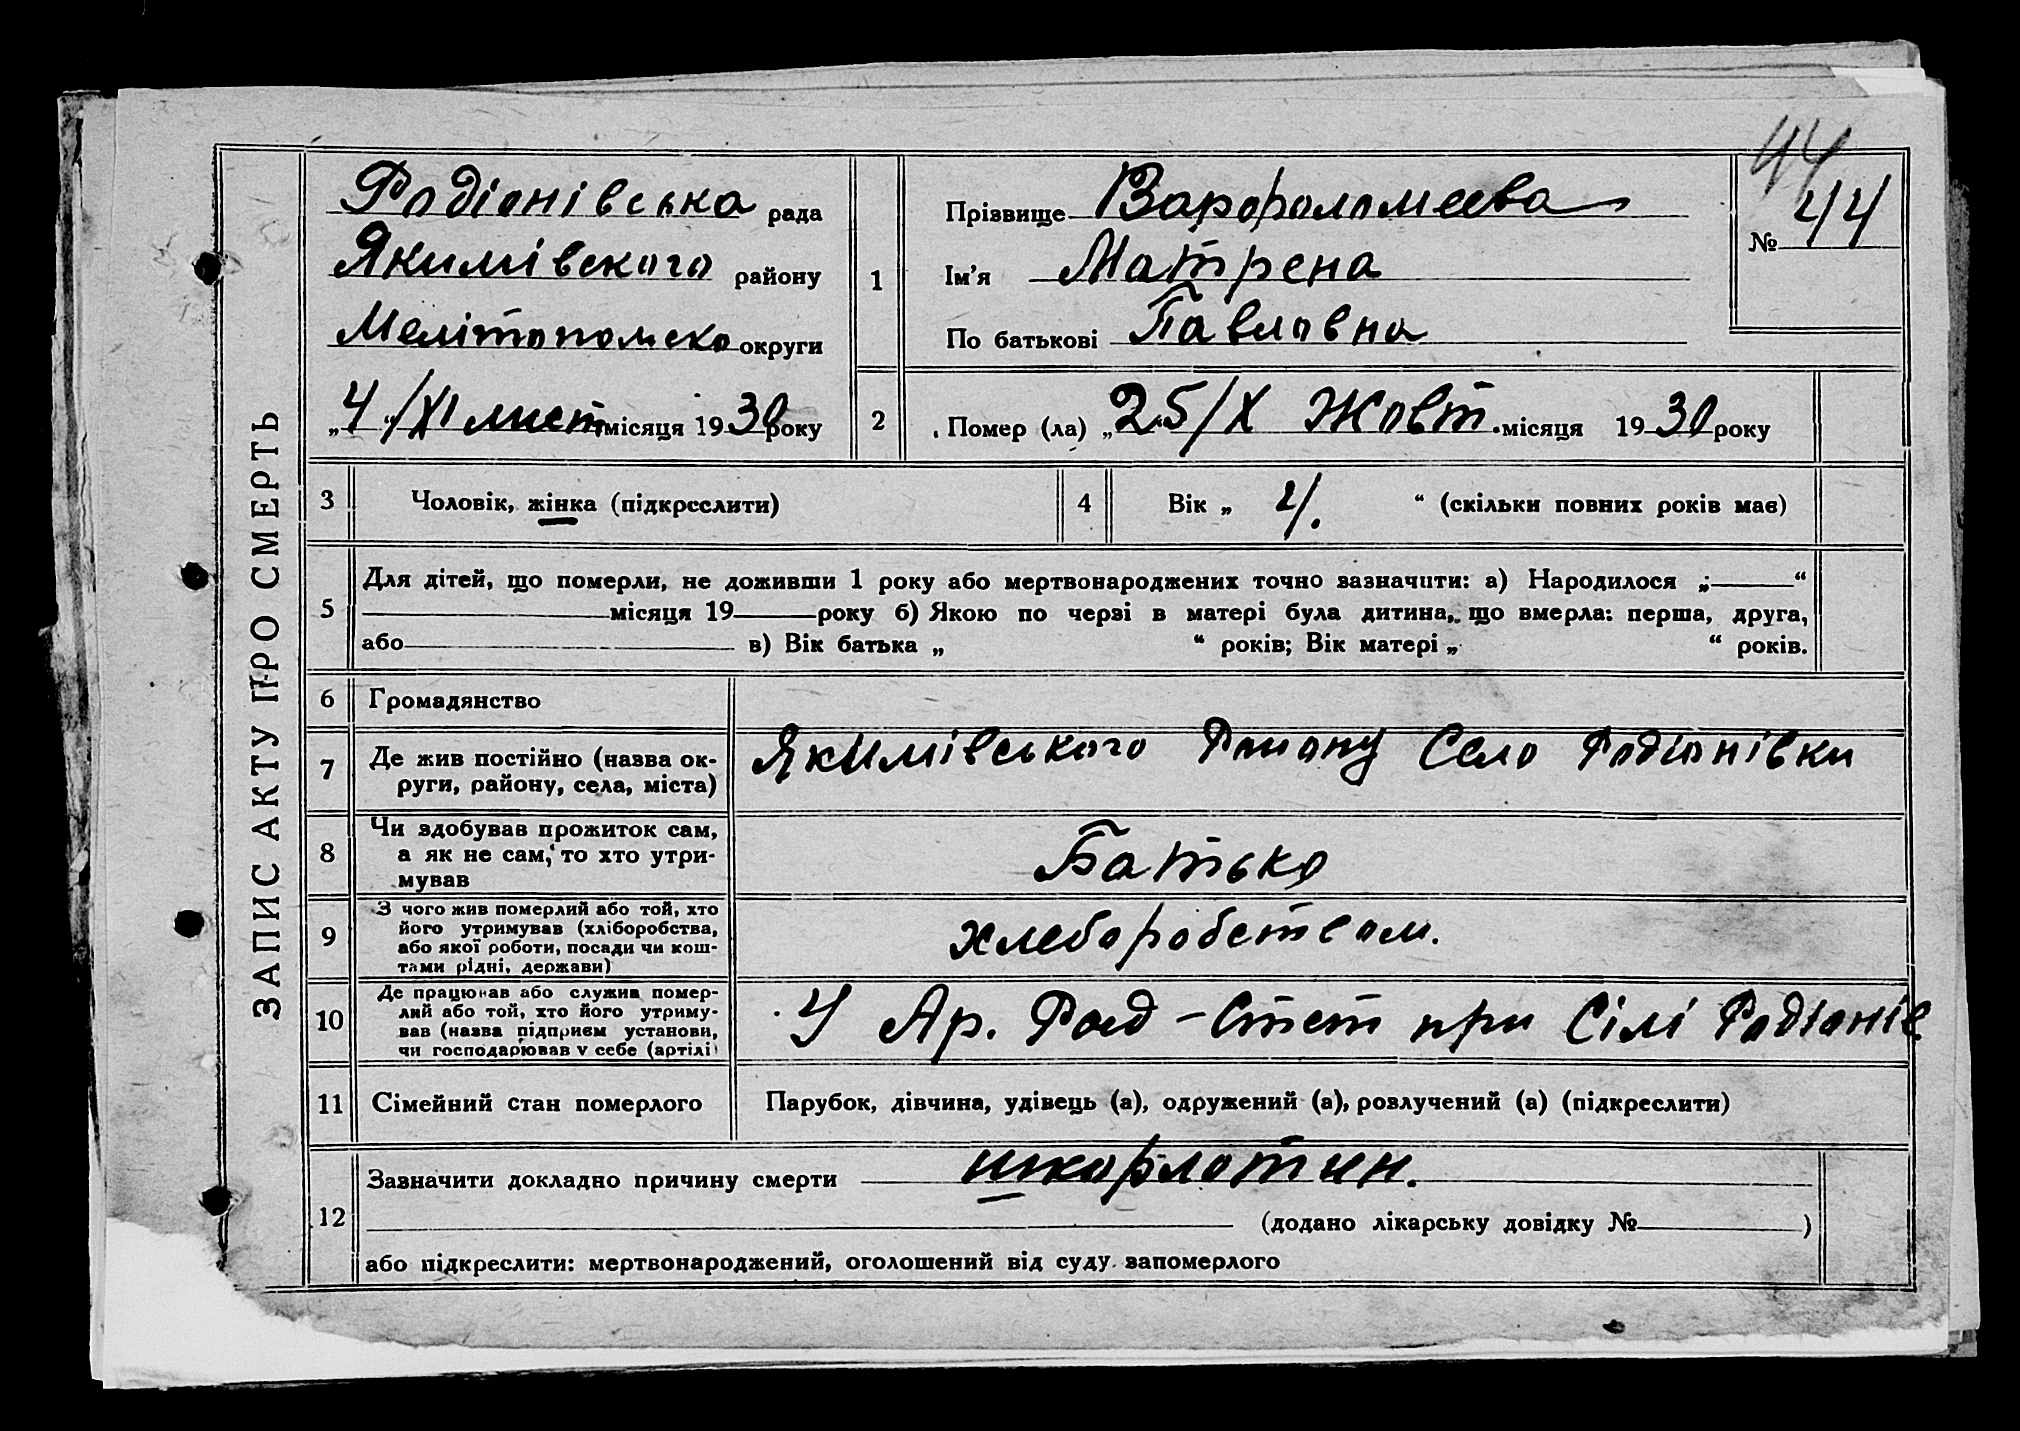 ЗАПИС АКТУ ПРО СМЕРТЬ
44
Родіонівська рада
Якимівского району
Мелітопомско округи
„4“/XI лист. місяця 1930 року
1
Прізвище Варфоломеева
Ім’я Матрена
По батькові Павловна
№ 44
2
Помер (ла) „25/X Жовт. місяця 1930 року
3
Чоловік, жінка (підкреслити)
4
Вік „ 4. “ (скільки повних років має)
5
Для дітей, що померли, не доживши 1 року або мертвонароджених точно зазначити: а) Народилося „ “
місяця 19 року б) Якою по черзі в матері була дитина, що вмерла: перша, друга,
або в) Вік батька „ “ років; Вік матері „ “ років.
6
Громадянство
7
Де жив постійно (назва ок-
руги, району, села, міста)
Якимівського Району Село Родіонівки
8
Чи здобував прожиток сам,
а як не сам, то хто утри-
мував
Батько
9
З чого жив померлий або той, хто
його утримував (хліборобства,
або якої роботи, посади чи кош-
тами рідні, держави)
хлеборобством.
10
Де працював або служив помер-
лий або той, хто його утриму-
вав (назва підприєм установи,
чи господарював у себе (артілі)
У Ар. при Сілі Родіонів
11
Сімейний стан померлого
Парубок, дівчина, удівець (а), одружений (а), розлучений (а) (підкреслити)
12
Зазначити докладно причину смерти шкорлотин.
(додано лікарську довідку № )
або підкреслити: мертвонароджений, оголошений від суду запомерлого